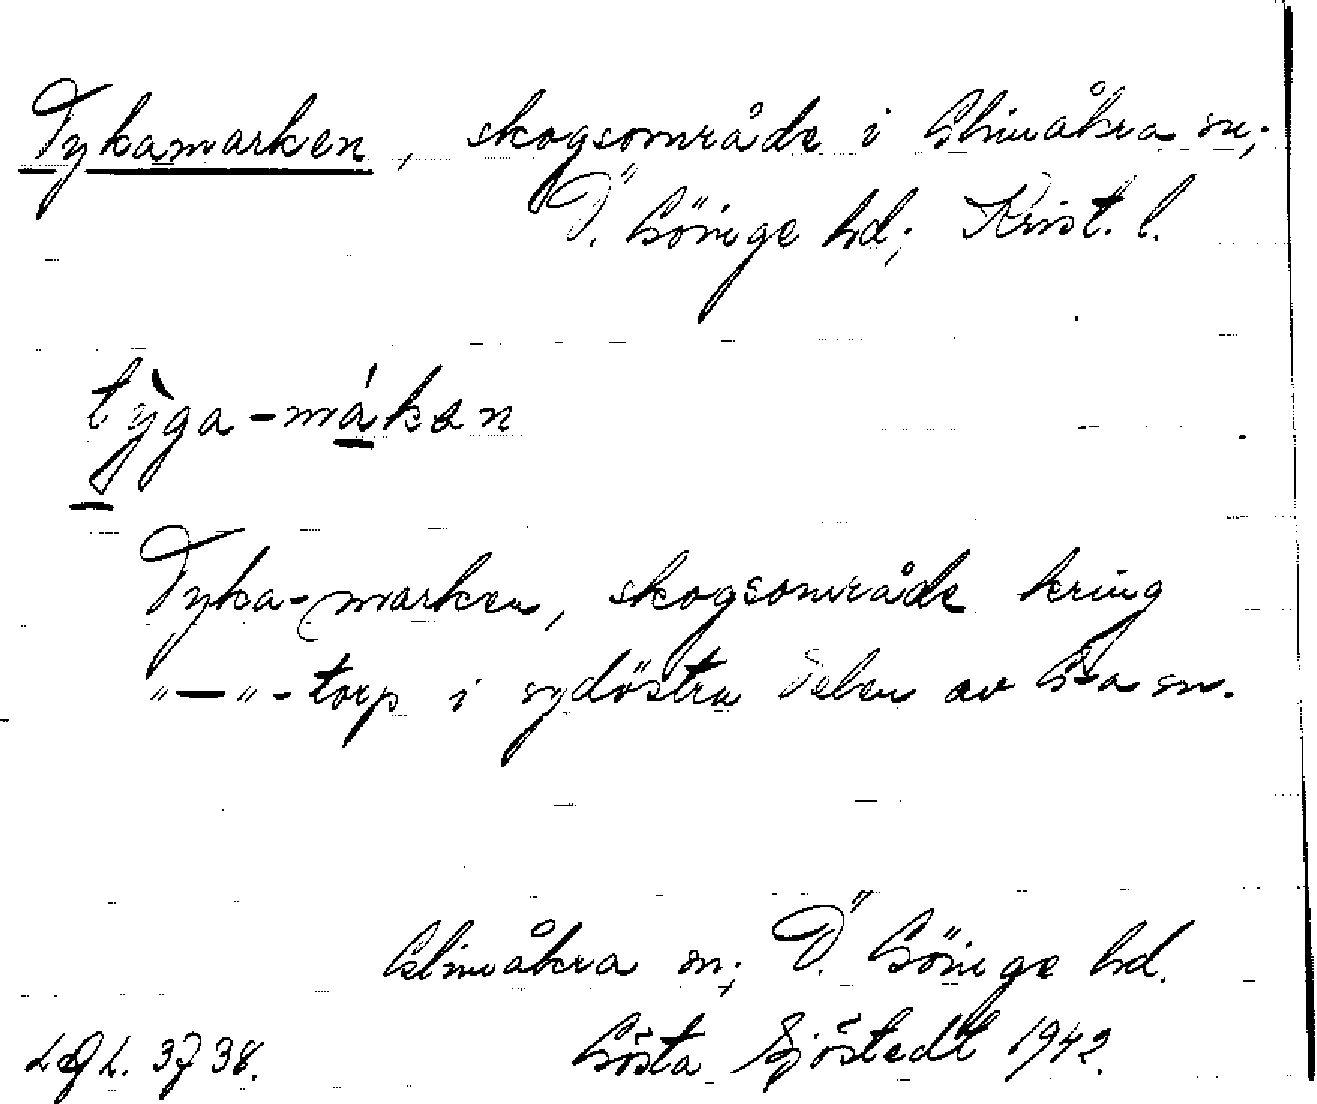 Tykamarken, skogsområde i Glimåkra sn;
Ö. Göinge hd; Krist. l.
tỳga-mákan
Tyka-marken, skogsområde kring
"—"-torp i sydöstra delen av G-a sn.
Glimåkra sn; Ö. Göinge hd.
Gösta Sjöstedt 1942.
3738.